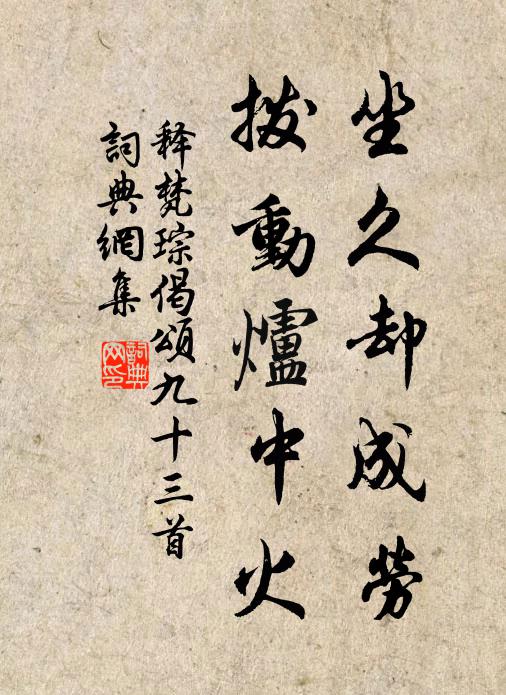 坐久却成勞
撥動爐中火
释梵琮偈頌九十三首
詞典網集
詞典网印